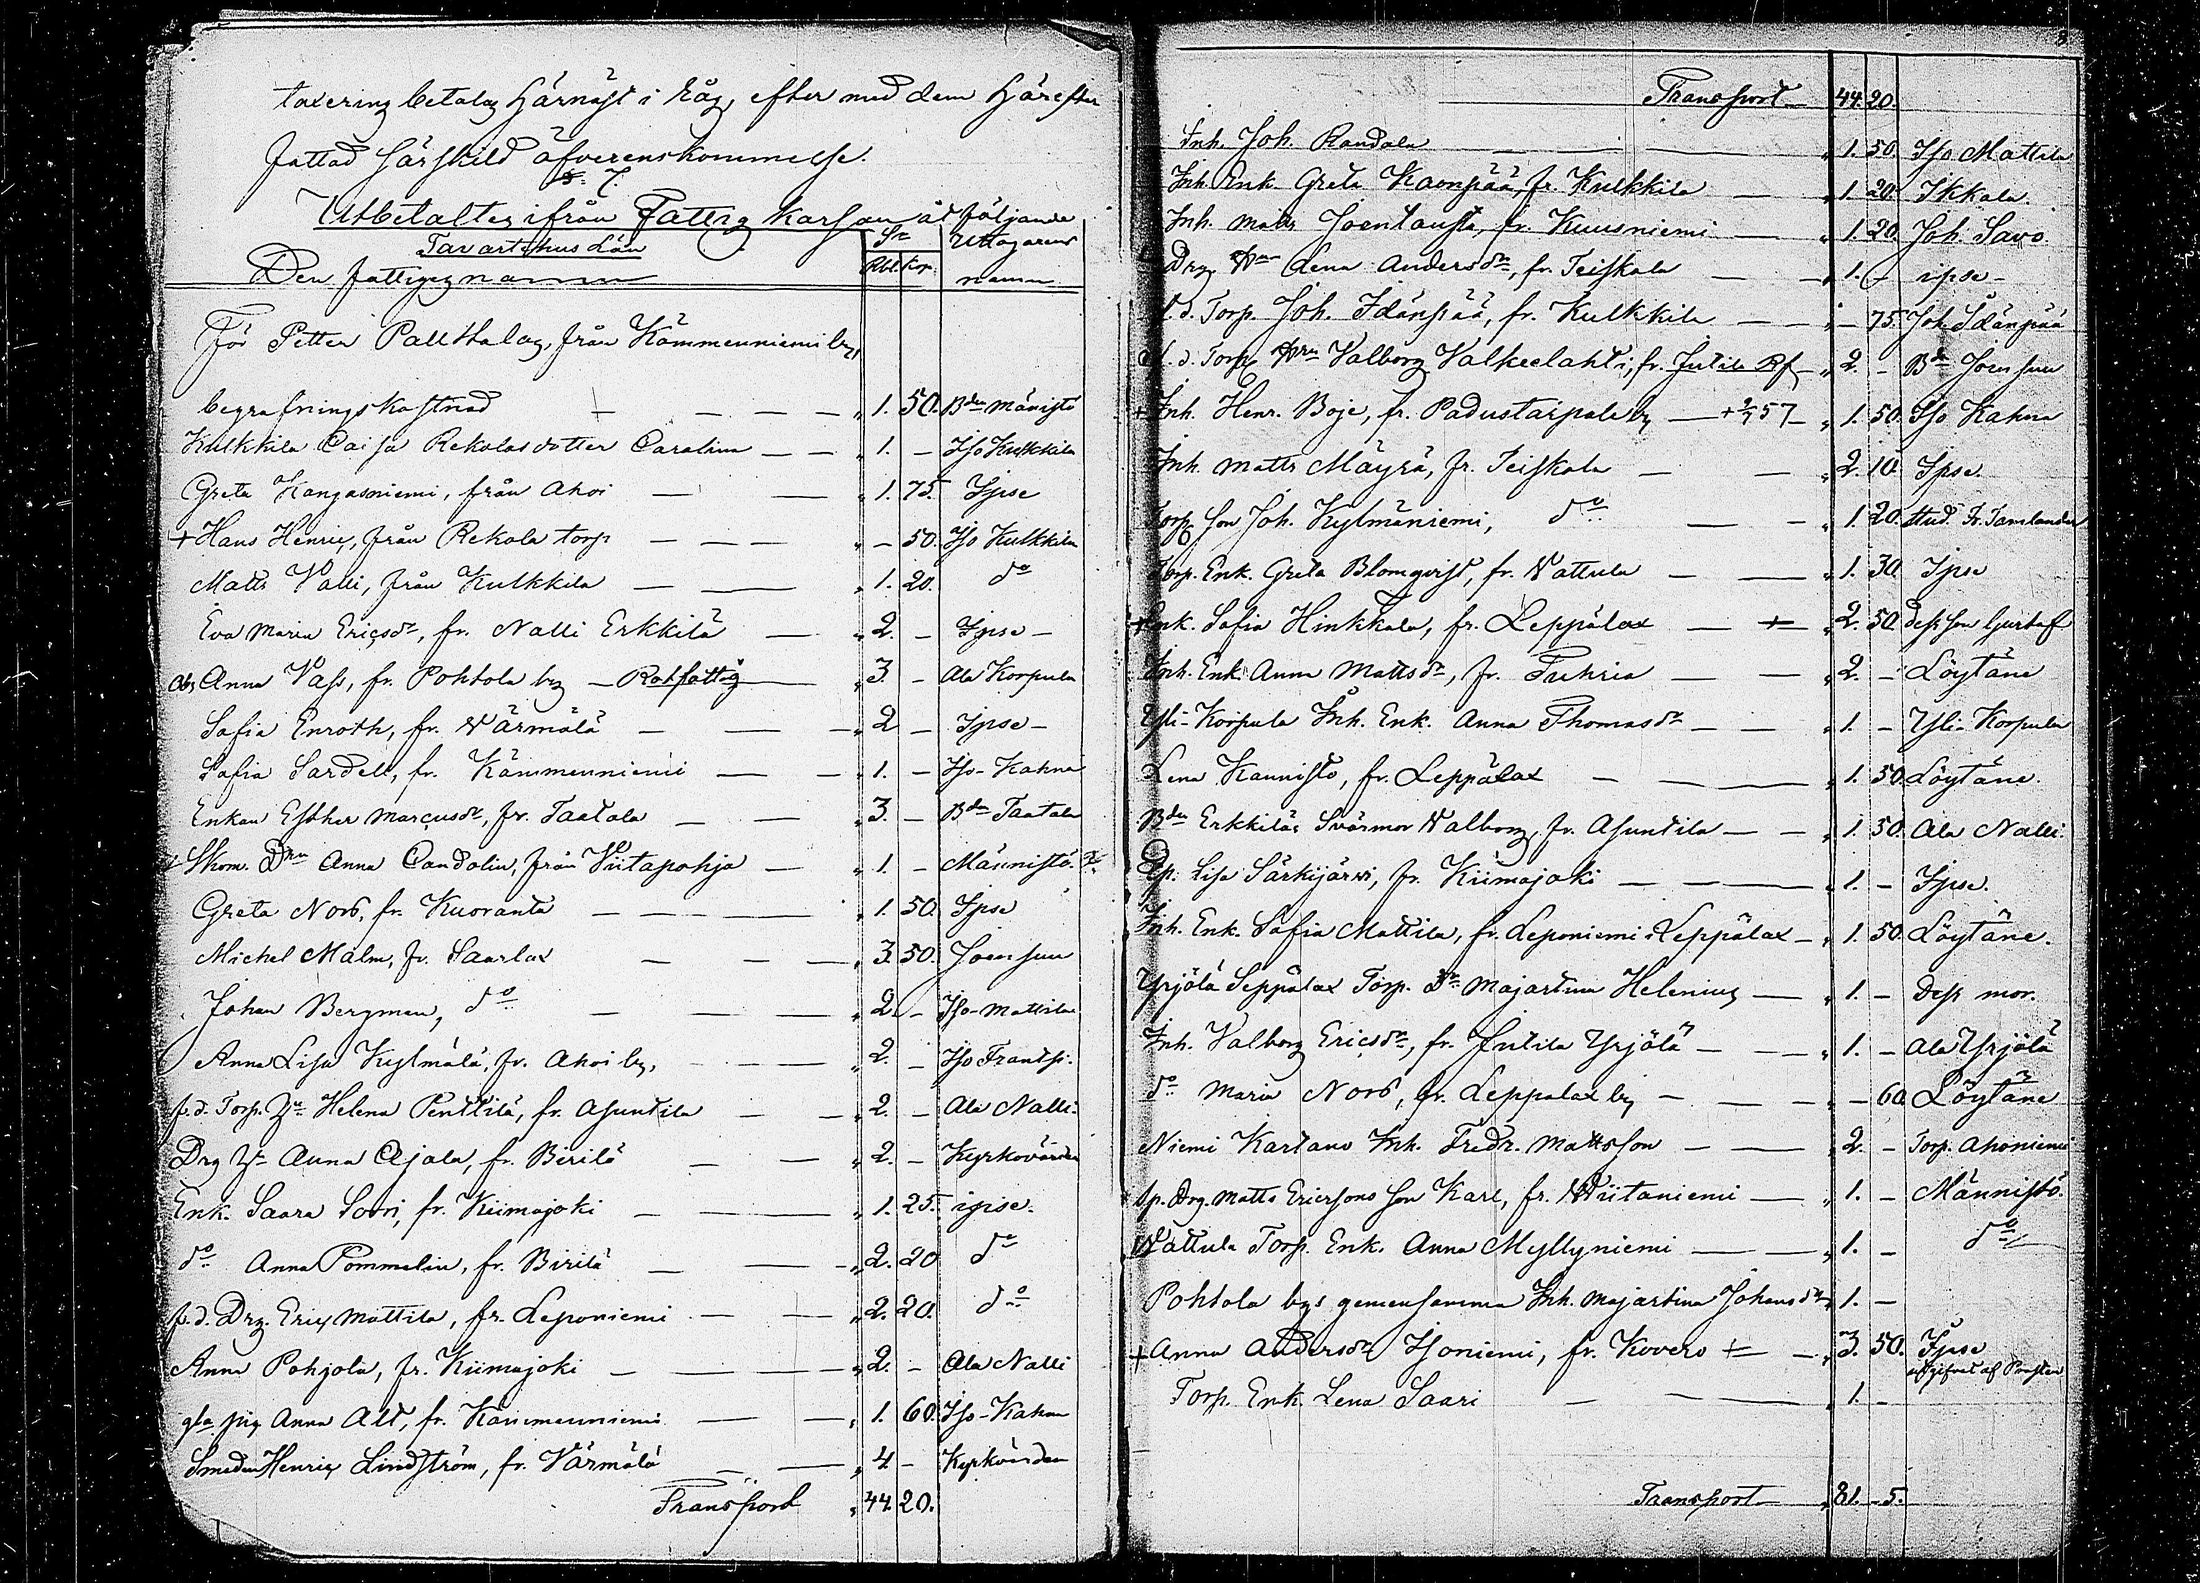 taxering betalas härnäst i Råg, efter med dem härefter
fattad särskild öfverenskommelse.
§ 7.
Utbetaltes ifrån Fattig kassan åt följande
Tavastehus Län
Den fattiges namn Sr Rbl. Kop. Uttagarens namn
För Petter Pallthalas, från Kämmenniemi by,
begrafningskostnad — — — — „ 1. 50. Bdn Mänistö
Kulkkila Caisa Rekolas dotter Carolina — — „ 1. — Iso Kulkkila
Greta Kangasniemi, från Ahoi — — „ 1. 75. Ipse
+ Hans Henric, från Rekola torp — — — „ — 50. Iso Kulkkila
Matts Valli, från Kulkkila — — „ 1. 20. do
Eva Maria Ericsdr, fr. Nalli Erkkilä — „ 2. — Ipse —
Obs Anna Vass, fr. Pohtola by — Rotfattig „ 3. — Ala Korpula
Sofia Enroth, fr. Wärmälä — — — „ 2 — Ipse —
Sofia Sardell, fr. Kämmenniemi — — „ 1. — Iso-Kahna
Enkan Esther Marcusdr, fr. Taatala — — „ 3. — Bdn Taatala
+ Skom. Dn Anna Candolin, från Viitapohja — „ 1. — Männistö.
Greta Nord, fr. Kuoranta — — — — „ 1. 50. Ipse
Michel Malm, fr. Saarlax — — — „ 3. 50. Joensuu
Johan Bergman, do — — — „ 2. — Iso-Mattila
Anna Lisa Kylmälä, fr. Ahoi by, — — „ 2. — Iso Frantsi.
f.d. Torp. Hu Helena Penttilä, fr. Asuntila — — „ 2. — Ala Nalli.
Drg Hu Anna Ajala, fr. Birilä — — „ 2. — Kyrkovärden
Enk. Saara Sotri, fr. Kiimajoki — — — „ 1. 25. ipse.
do Anna Pommelin, fr. Birilä — — — „ 2. 20 do
f.d. Drg. Eric Mattila, fr. Leponiemi — — „ 2. 20. do
Anna Pohjola, fr. Kiimajoki — — — „ 2. — Ala Nalli
gla pig. Anna Alt, fr. Kämmenniemi — — „ 1. 60. Iso-Kahna
Smeden Henric Lindström, fr. Värmälä — — „ 4 — Kyrkovärden
Transport „ 44. 20.
Transport 44. 20.
Inh. Joh. Randala — — „ 1. 50. Iso Mattila
Inh. Enk. Greta Kaonpää, fr. Kulkkila — „ 1. 20. Ikkala.
Inh. Matts Joentausta, fr. Kuusniemi — „ 1. 20. Joh. Savo.
Drg. Lena Andersdr, fr. Teiskola — „ 1. — ipse —
f.d. Torp. Joh. Idänpää, fr. Kulkkila — — „ — 75. Joh. Idänpää
f.d. Torp. Valborg Valkeelahti, fr. Jutila Rf „ 2. — Bdn Joensuu
+ Inh. Henr. Boje, fr. Padustaipale by — + 2/7 57 — „ 1. 50. Iso Kahna
Inh. Matts Mäyrä, fr. Teiskola — — „ 2. 10. Ipse.
Torp. son Joh. Kylmäniemi, do — — „ 1. 20. Stud. Fr. Tamlander
Torp. Enk. Greta Blomqvist, fr. Wattula — — „ 1. 30. Ipse
+ Enk. Sofia Hinkkala, fr. Leppälax — + „ 2. 50. dess son Gustaf
Inh. Enk. Anna Mattsdr, fr. Tuhria — — „ 2. — Löytäne
Yli-Korpula Inh. Enk. Anna Thomasdr — — „ 1. — Yli-Korpula
Lena Kannisto, fr. Leppälax — — „ 1. 50. Löytäne.
Bdn Erkkiläs Svärmor Walborg, fr. Asuntila — — „ 1. 50. Ala Nalli.
Lisa Särkijärwi, fr. Kiimajoki — — — „ 1. — Ipse.
Inh. Enk. Sofia Mattila, fr. Leponiemi Leppälax — „ 1. 50. Löytäne.
Yrjölä Leppälax Torp. Dr Majastina Helenius — „ 1. — Dess mor.
Inh. Valborg Ericsdr, fr. Jutila Yrjölä — — „ 1. — Ala Yrjölä
do Maria Nord, fr. Leppalax by — — — „ — 60. Löytäne
Niemi Kartano Inh. Fredr. Mattsson — — „ 2. — Torp. Ahoniemi
sp. Drg. Matts Ericssons son Karl, fr. Wiitaniemi — „ 1. — Männistö.
Wattula Torp. Enk. Anna Myllyniemi — — „ 1. — do
Pohtola bys gemensamma Inh. Majastina Johansdr „ 1. —
+ Anna Andersdr Isoniemi, fr. Kovero + — „ 3. 50. Ipse
utgifvet af Prosten
Torp. Enk. Lena Saari — — „ 1. —
Transport — „ 81. — 5.